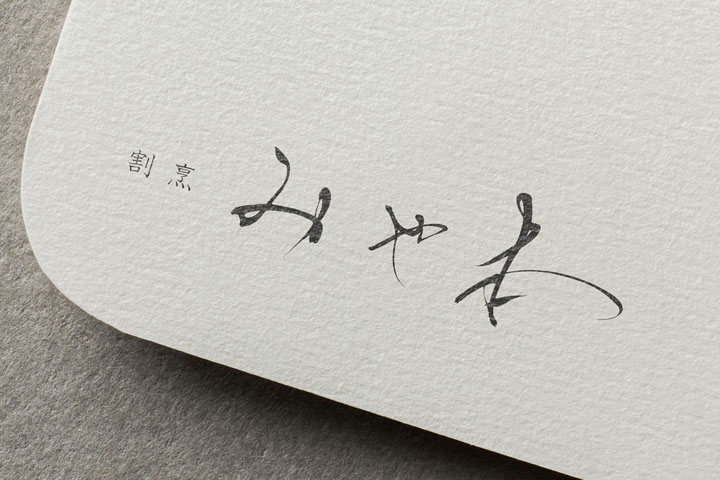 割烹 みやわ